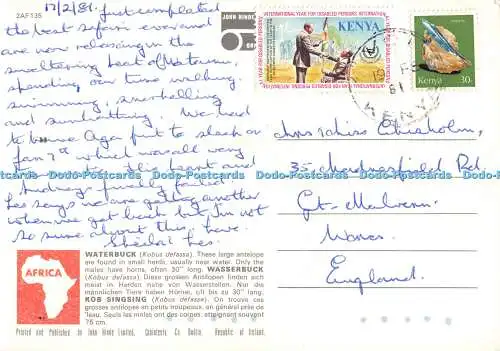 2AF135
17/2/81. Just completed
the best safari ever and
are now relaxing in the
sweltering heat of Watamu,
spending our time walking,
swimming, snorkelling
and sunbathing. We had
to
heart and
Audrey finally failed
he says we are getting another
when we get back but I'm not
so sure about this
Sheila
JOHN HINDE
INTERNATIONAL YEAR FOR DISABLED PERSONS
KENYA
Kenya
30c
Miss Chisholm,
35 Rd.
Gt. Malvern
Worcs.
England.
Dodo-Postcards Dodo-Postcards Dodo-Postcards Dodo-Postcards
AFRICA
WATERBUCK (Kobus defassa). These large antelope
are found in small herds, usually near water. Only the
males have horns, often 30" long. WASSERBUCK
(Kobus defassa). Diese grossen Antilopen finden sich
meist in Herden nahe von Wasserstellen. Nur die
männlichen Tiere haben Hörner, oft bis zu 30" lang.
KOB SINGSING (Kobus defassa). On trouve ces
grosses antilopes en petits troupeaux, en général près de
l'eau. Seuls les mâles ont des cornes, atteignant souvent
75 cm.
Printed and Published by John Hinde Limited, Cabinteely, Co. Dublin, Republic of Ireland.